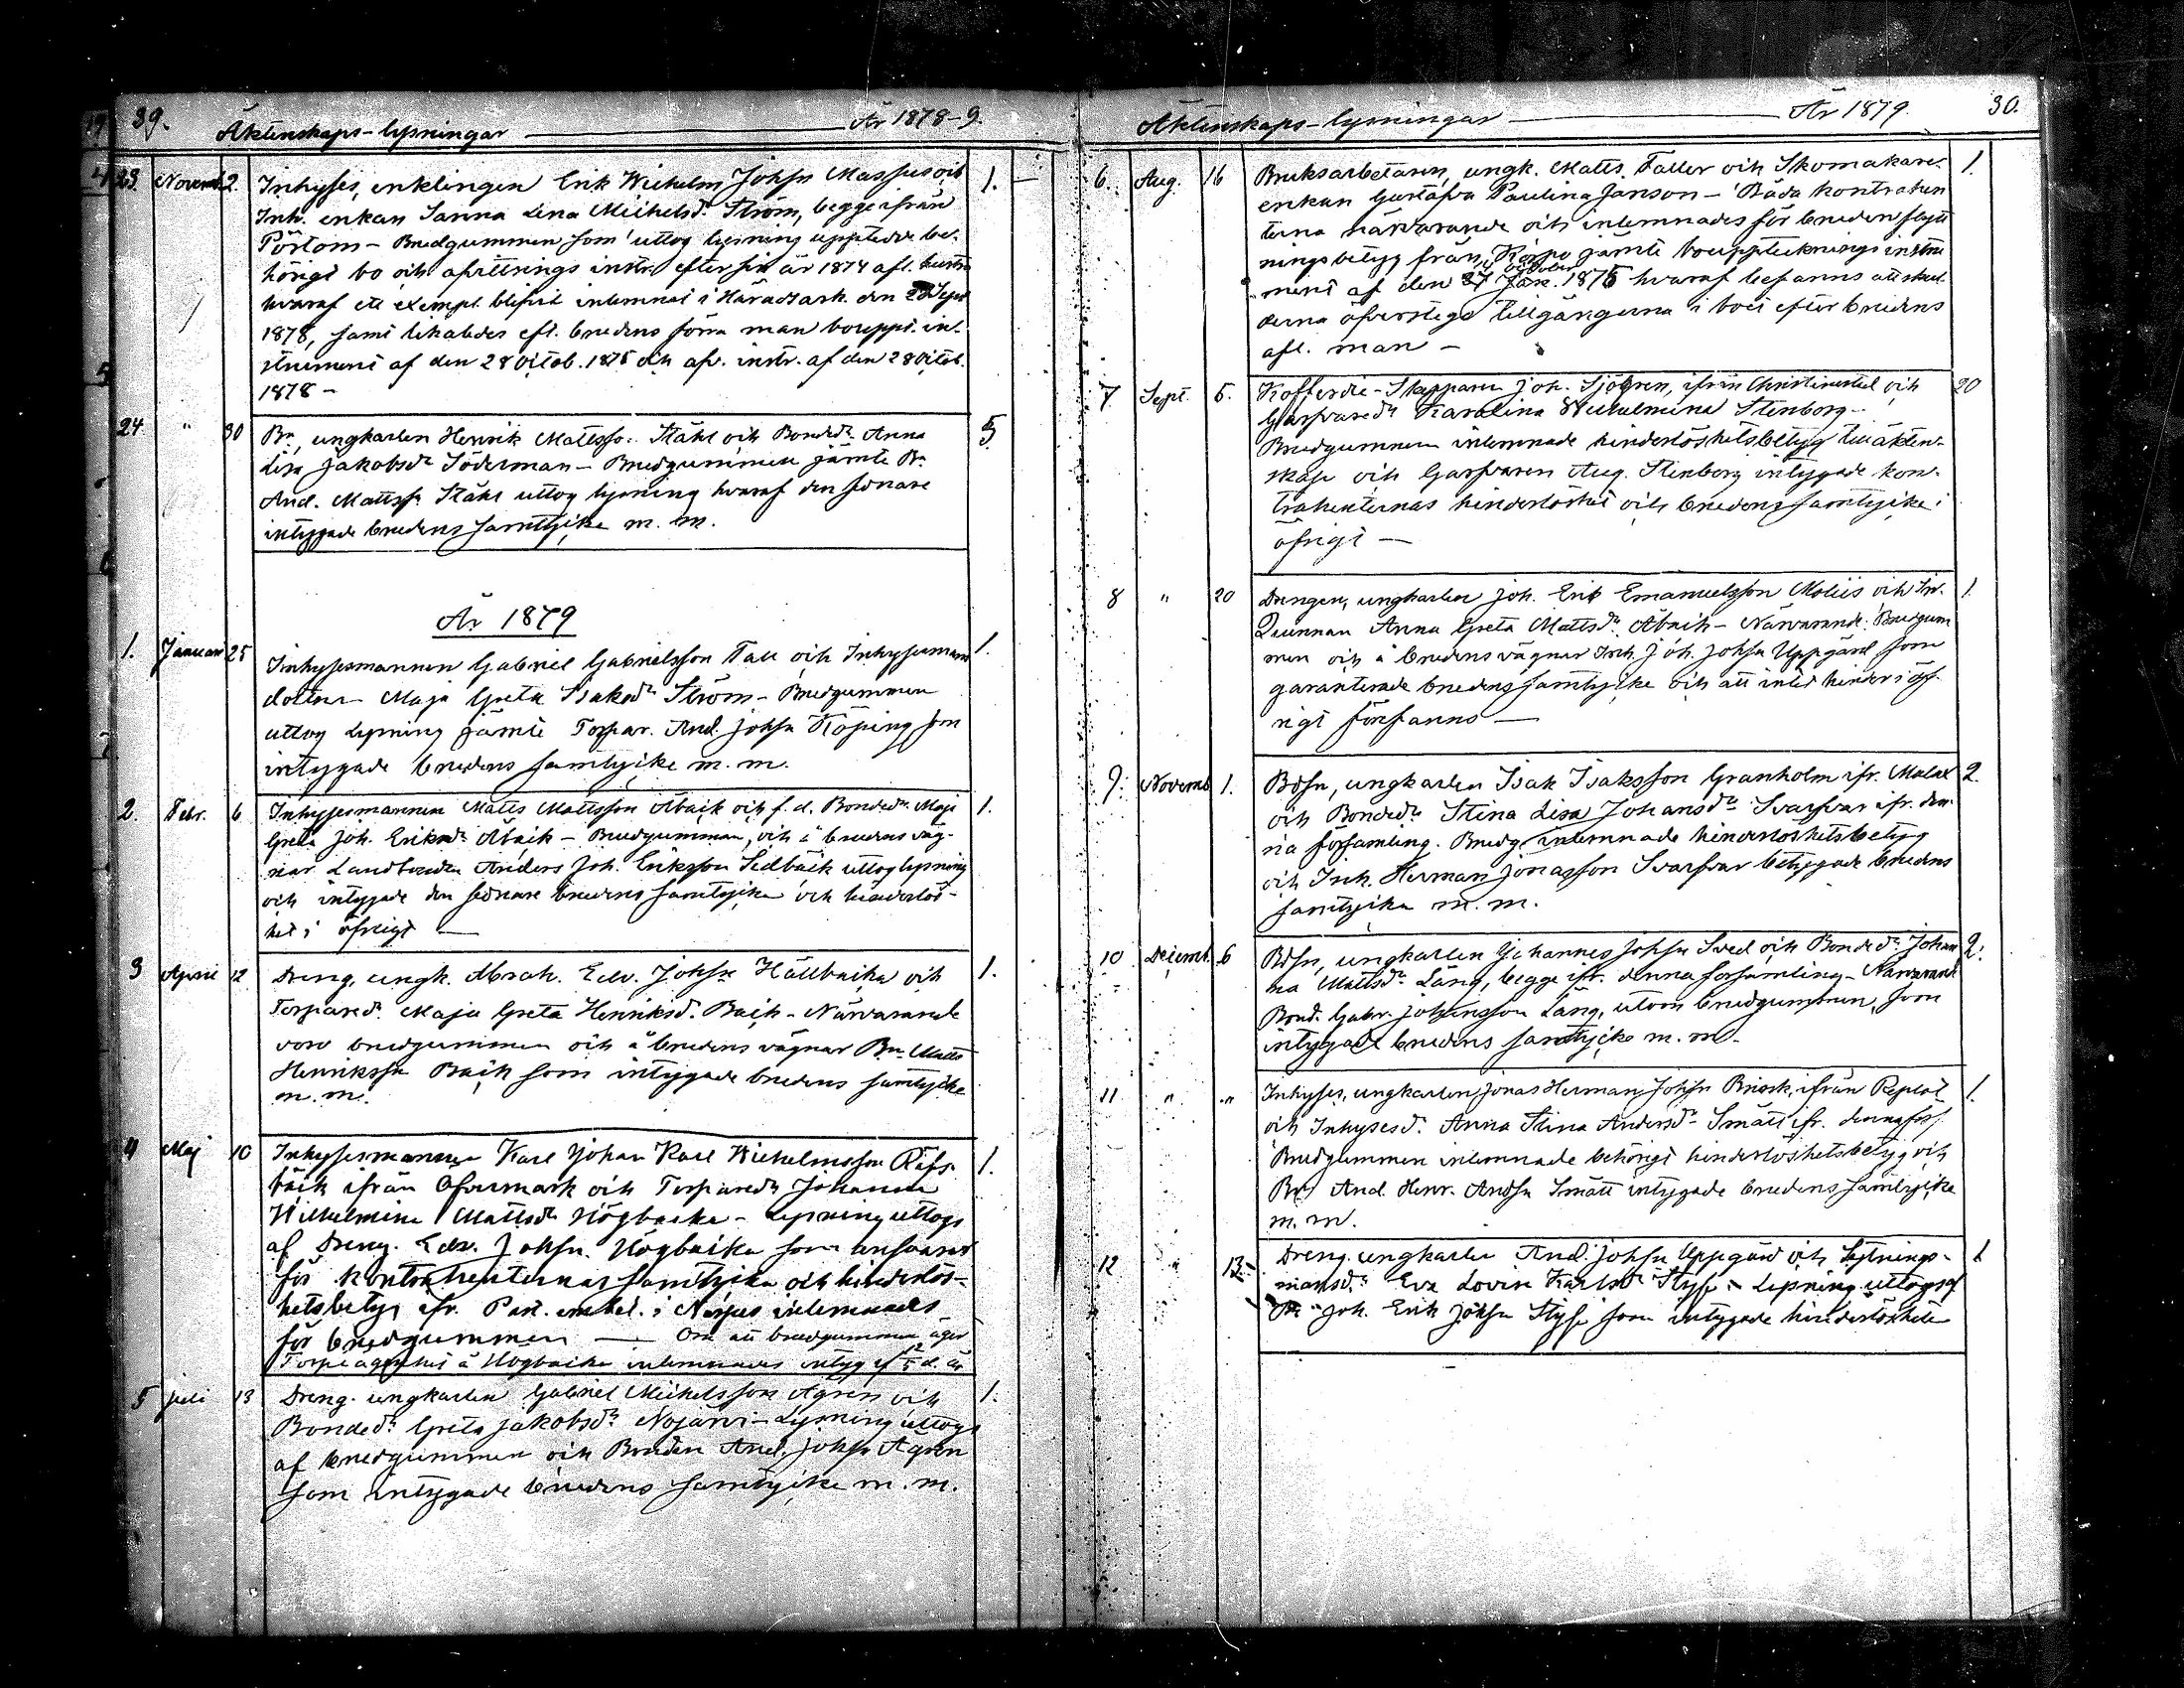 39. Äktenskaps-lysningar — År 1878-9.
23. Novemb. 2. Inhyses, enklingen Erik Wilhelm Johsn Massus och 1.
Inh. enkan Sanna Lena Michelsdr Ström, begge ifrån
Pörtom – Brudgummen som uttog lysning uppledde be-
hörigt bo och afvittrings instr. efter sin år 1874 afl. hustru
hvaraf ett exempl. blifvit inlemnat i Häradsark. den Sept
1878, samt likaledes eft. brudens förra man bouppt. in-
strument af den 28 Octob. 1875 och afv. instr. af den 28 Octob.
1878 –
24. " 30 Bn, ungkarlen Henrik Mattsson Ståhl och Bondedr Anna 5
Lisa Jakobsdr Söderman – Brudgummen jämte Bn
And. Mattss. Ståhl uttog lysning hvaraf den sednare
intygade brudens samtycke m. m.
År 1879
1. Januari 25 Inhysesmannen Gabriel Gabrielsson Tall och Inhysesmans 1.
dottern Maja Greta Isaksdr Ström – Brudgummen
uttog Lysning jämte Torpar. And. Johsn Köping som
intygade brudens samtycke m. m.
2. Febr. 6 Inhysesmannen Matts Mattsson Åback och f. d. Bondedr Maja 1.
Greta Joh. Eriksdr Åback – Brudgumman, och å brudens väg-
nar Landbonden Anders Joh. Eriksson Sedbäck uttog lysning
och intygade den sednare brudens samtycke och hinderlös-
het i öfrigt —
3 April 12 Dreng, ungk. Abrah. Edv. Johsn Hällbacka och 1.
Torparedr Maja Greta Henriksd. Back – Närvarande
voro brudgummen och å brudens vägnar Bn Matts
Henrikssn Back som intygade brudens samtycke
m. m.
4 Maj 10 Inhysesmannen Karl Johan Karl Wilhelmsson Räfs- 1.
bäck ifrån Öfvermark och Torparedr Johanna
Wilhelmina Mattsdr Högbacka – Lysning uttogs
af Dreng. Edv. Johsn. Högbacka som ansvarar
för kontrahenternas samtycke och hinderlös-
hetsbetyg ifr. Past. embet. i Närpes inlemnades
för brudgummen — Om att brudgummen äger
Torpe å Högbacka inlemnades intyg af d. år
5 Juli 13 Dreng. ungkarlen Gabriel Michelsson Ågren och 1.
Bondedr Greta Jakobsdr Nojärvi – Lysning uttogs
af brudgummen och Bonden And. Johsn Ågren
som intygade brudens samtycke m. m.
Äktenskaps-lysningar — År 1879. 30.
6. Aug. 16 Bruksarbetaren, ungk. Matts Faller och Skomakare- 1.
enkan Gustafva Paulina Janson – Båda kontrahen
terna närvarande och inlemnades för bruden flytt
ningsbetyg från Korpo jämte bouppteckningsinstru
ment af den 27 October 1876 hvaraf befanns att skul-
derna öfverstego tillgångerna i boet efter brudens
afl. man –
7 Sept. 5. Kofferdie-Skepparen Joh. Sjögren, ifrån Christinestad och 20
Garfvaredr Karolina Wilhelmina Stenborg –
Brudgummen inlemnade hinderlöshetsbetyg till äkten-
skap och Garfvaren Aug. Stenborg intygade kon-
trahenternas hinderlöshet och brudens samtycke i
öfrigt —
8 " 20 Drengen, ungkarlen Joh. Erik Emanuelsson Moliis och Inh. 1.
Qvinnan Anna Greta Mattsdr Åback – Närvarande: Brudgum
men och å brudens vägnar Inh. Joh. Johsn Uppgård som
garanterade brudens samtycke och att intet hinder i öf-
rigt förefanns —
9. Novemb. 1. Bdsn, ungkarlen Isak Isaksson Granholm ifr. Malax 2.
och Bondedr Stina Lisa Johansdr Svarfvar ifr. den-
na församling. Brudg. inlemnade hinderlöshetsbetyg
och Inh. Herman Jonasson Svarfvar betygade brudens
samtycke m. m.
10 Decemb. 6 Bdsn, ungkarlen Johannes Johsn Sved och Bondedr Johan 2.
na Mattsdr Lång, begge ifr. denna församling – Närvarande
Bond. Gabr. Johansson Lång, utom brudgummen, som
intygade brudens samtycke m. m.
11 " " Inhyses, ungkarlen Jonas Herman Johsn Brask, ifrån Replot 1.
och Inhysesd. Anna Stina Andersdr Smått ifr. denna förs.
Brudgummen inlemnade behörigt hinderlöshetsbetyg och
Bn And. Henr. Andsn Smått intygade brudens samtycke
m. m.
12 " 13. Dreng. ungkarlen And. Johsn Uppgård och Sytnings- 1
mansdr Eva Lovisa Karlsdr Styfs – Lysning uttogs af
Joh. Erik Johsn Styfs som intygade hinderlösheten